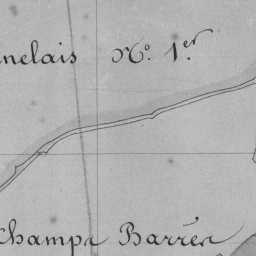 nelais N.o 1.er
Champs Barrés